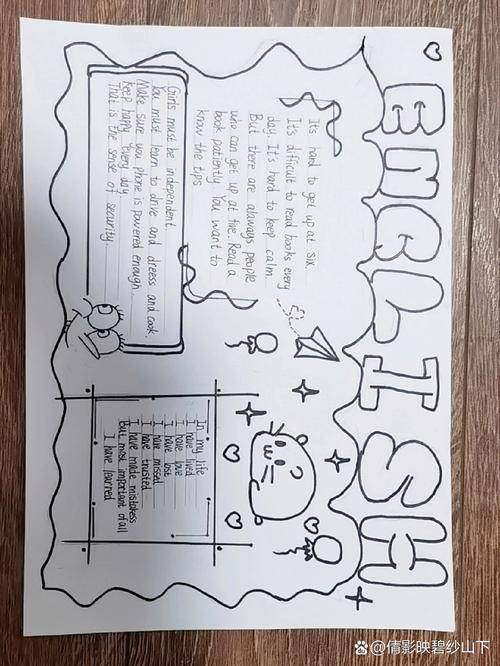 ENGLISH
It's hard to get up at six.
It's difficult to read books every
day. It's hard to keep calm.
But there are always people
who can get up at five. Read a
book patiently. You want to
know the tips
Girls must be independent.
You must learn to drive and dreess and cook.
Make sure you phone is powered enough.
Keep happy every day.
That is the sense of security.
In my life
I have lived
I have love
I have lost
I have missed
I have trusted
I have made mistakess
But most important of all
I have learned
百家号/倩影映碧纱山下